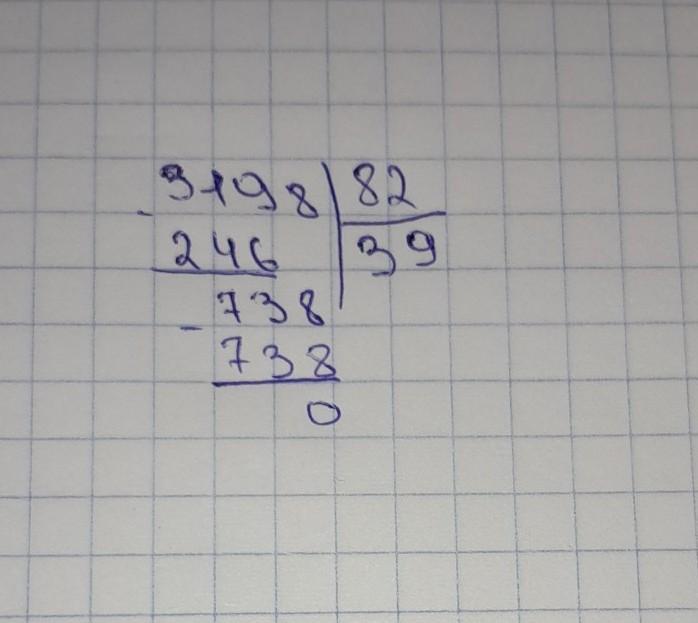 3198 82
- 246 39
738
- 738
0